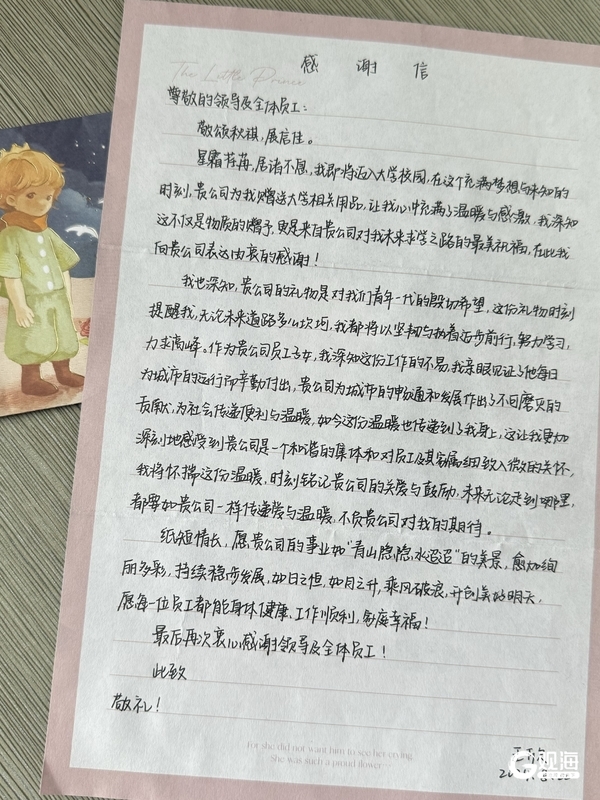 The Little Prince
感 谢 信
尊敬的领导及全体员工:
敬颂秋祺,展信佳。
星霜荏苒,居诸不息,我即将迈入大学校园,在这个充满梦想与未知的
时刻,贵公司为我赠送大学相关用品,让我心中充满了温暖与感激,我深知
这不仅是物质的赠予,更是来自贵公司对我未来求学之路的最美祝福,在此我
向贵公司表达由衷的感谢!
我也深知,贵公司的礼物是对我们青年一代的殷切希望,这份礼物时刻
提醒我,无论未来道路多么坎坷,我都将以坚韧与执着迈步前行,努力学习,
力至高峰。作为贵公司员工子女,我深知这份工作的不易,我亲眼见证了他每日
为城市的运行而辛勤付出,贵公司为城市的畅通和发展作出了不可磨灭的
贡献,为社会传递便利与温暖,如今这份温暖也传递到了我身上,这让我更加
深刻地感受到贵公司是一个和谐的集体和对员工及其家属细致入微的关怀,
我将怀揣这份温暖,时刻铭记贵公司的关爱与鼓励,未来无论走到哪里,
都要如贵公司一样传递爱与温暖,不负贵公司对我的期待。
纸短情长,愿贵公司的事业如“青山隐隐,水迢迢”的美景,愈加绚
丽多彩,持续稳步发展,如日之恒,如月之升,乘风破浪,开创美好明天,
愿每一位员工都能身体健康、工作顺利,家庭幸福!
最后再次衷心感谢领导及全体员工!
此致
敬礼!
For she did not want him to see her crying.
She was such a proud flower...
观海